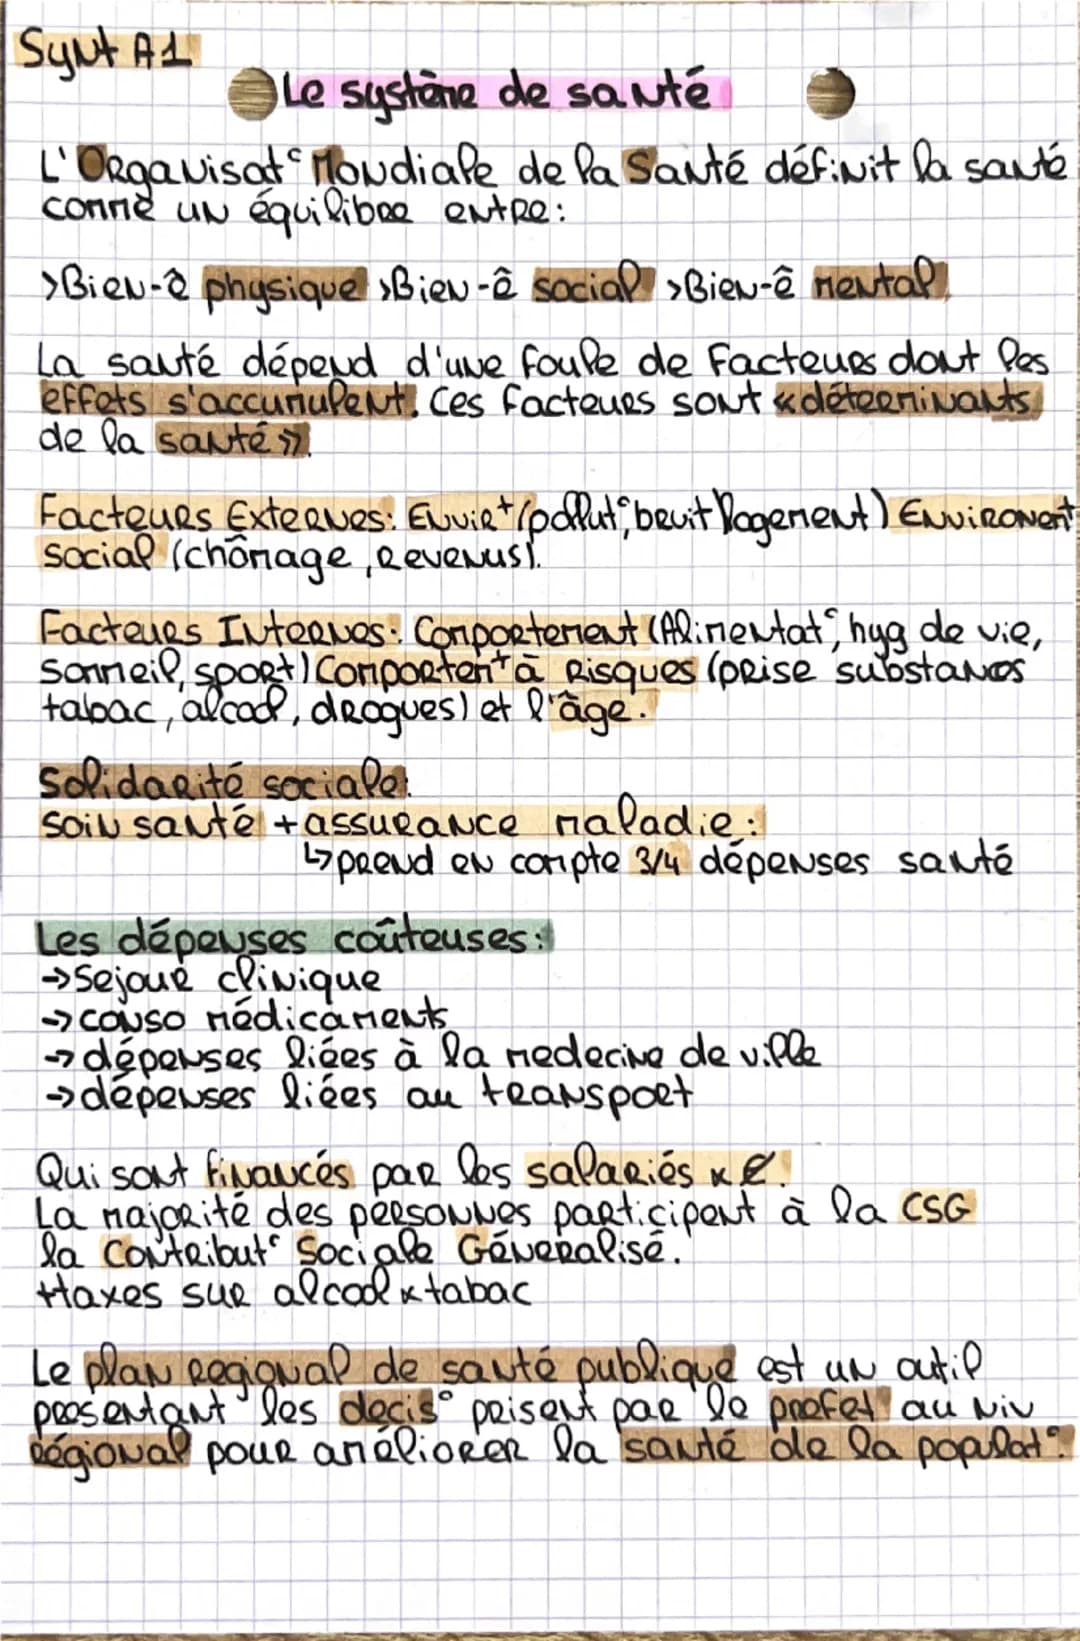 Synt A1
Le système de santé
L'Organisat° Mondiale de la Santé définit la santé
comme un équilibre entre:
>Bien-ê physique >Bien-ê social >Bien-ê mental
La santé dépend d'une foule de facteurs dont les
effets s'accumulent. Ces facteurs sont «déterminants
de la santé».
Facteurs Externes: Envirt (pollut°, bruit logement) Environent
social (chômage, revenus).
Facteurs Internes: Comportement (Alimentat°, hyg de vie,
sommeil, sport) Comportemt à Risques (prise substances
tabac, alcool, drogues) et l'âge.
Solidarité sociale:
soin santé + assurance maladie:
↳prend en compte 3/4 dépenses santé
Les dépenses coûteuses:
→Sejour clinique
→conso médicaments
→dépenses liées à la medecine de ville
→dépenses liées au transport
Qui sont financés par les salariés x
La majorité des personnes participent à la CSG
la Contribut° Sociale Généralisé.
+taxes sur alcool x tabac
Le plan regional de santé publique est un outil
presentant les decis° prisent par le prefet au niv
régional pour améliorer la santé de la populat°.